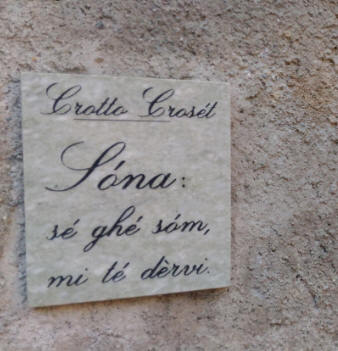 Crotto Crosét
Sóna:
sé ghé sóm,
mi té dèrvi.